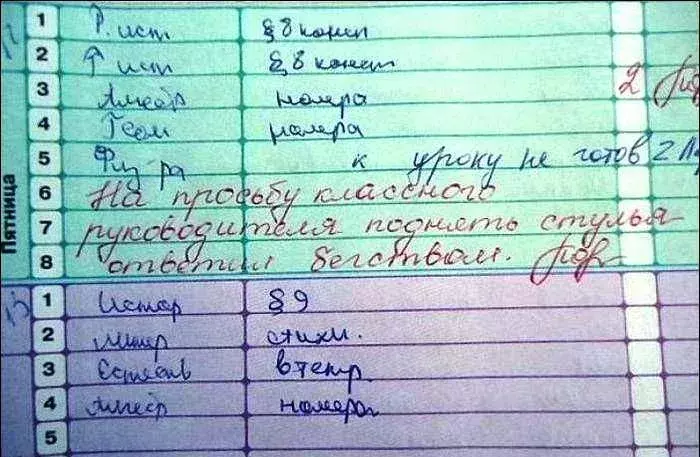 1 Р. ист § 8 консп
2 Р ист § 8 консп
3 Алгебр номера 2
4 Геом номера
5 Физ ра к уроку не готов 2
6 На просьбу классного
7 руководителя поднять стулья
8 ответил бегством.
Пятница
1 Истор § 9
2 Литер стихи.
3 Естеств в тетр.
4 Алгебр номера
5